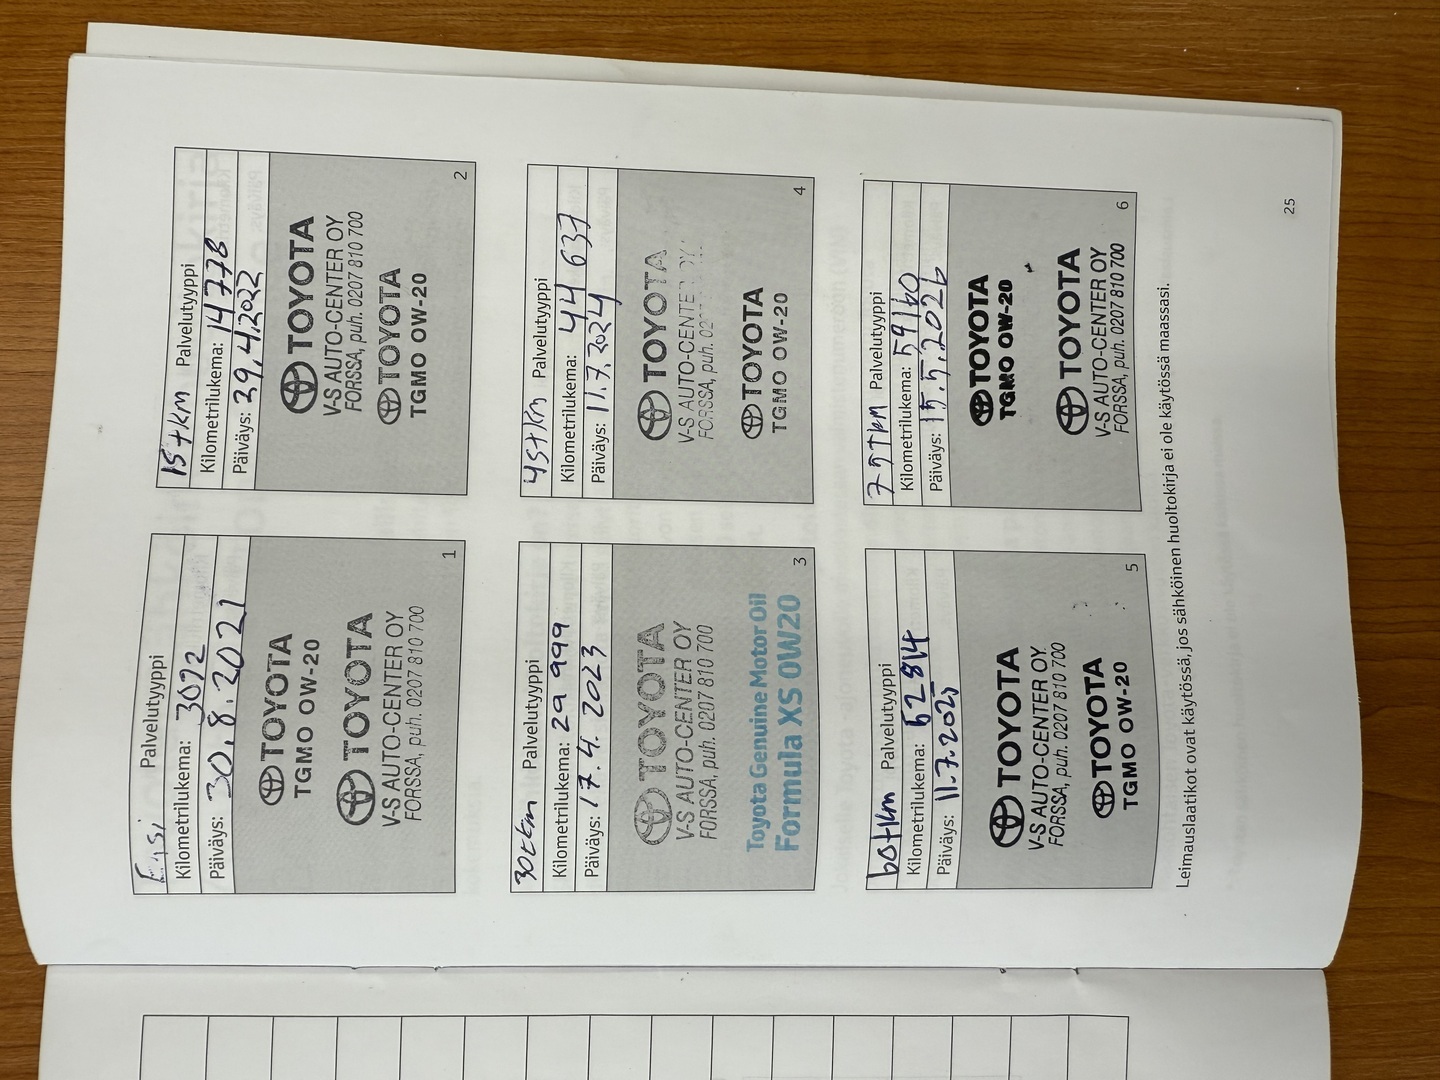 Ensi Palvelutyyppi
Kilometrilukema: 3092
Päiväys: 30.8.2021
TOYOTA
TGMO OW-20
TOYOTA
V-S AUTO-CENTER OY
FORSSA, puh. 0207 810 700
1
15tkm Palvelutyyppi
Kilometrilukema: 14778
Päiväys: 39,4,2022
TOYOTA
V-S AUTO-CENTER OY
FORSSA, puh. 0207 810 700
TOYOTA
TGMO OW-20
2
30tkm Palvelutyyppi
Kilometrilukema: 29 999
Päiväys: 17.4.2023
TOYOTA
V-S AUTO-CENTER OY
FORSSA, puh. 0207 810 700
Toyota Genuine Motor Oil
Formula XS 0W20
3
45tkm Palvelutyyppi
Kilometrilukema: 44 637
Päiväys: 11.7.2024
TOYOTA
V-S AUTO-CENTER OY
FORSSA, puh.
TOYOTA
TGMO OW-20
4
60tkm Palvelutyyppi
Kilometrilukema: 52814
Päiväys: 11.7.2025
TOYOTA
V-S AUTO-CENTER OY
FORSSA, puh. 0207 810 700
TOYOTA
TGMO OW-20
5
75Tkm Palvelutyyppi
Kilometrilukema: 59160
Päiväys: 15.5.2026
TOYOTA
TGMO OW-20
TOYOTA
V-S AUTO-CENTER OY
FORSSA, puh. 0207 810 700
6
Leimauslaatikot ovat käytössä, jos sähköinen huoltokirja ei ole käytössä maassasi.
25